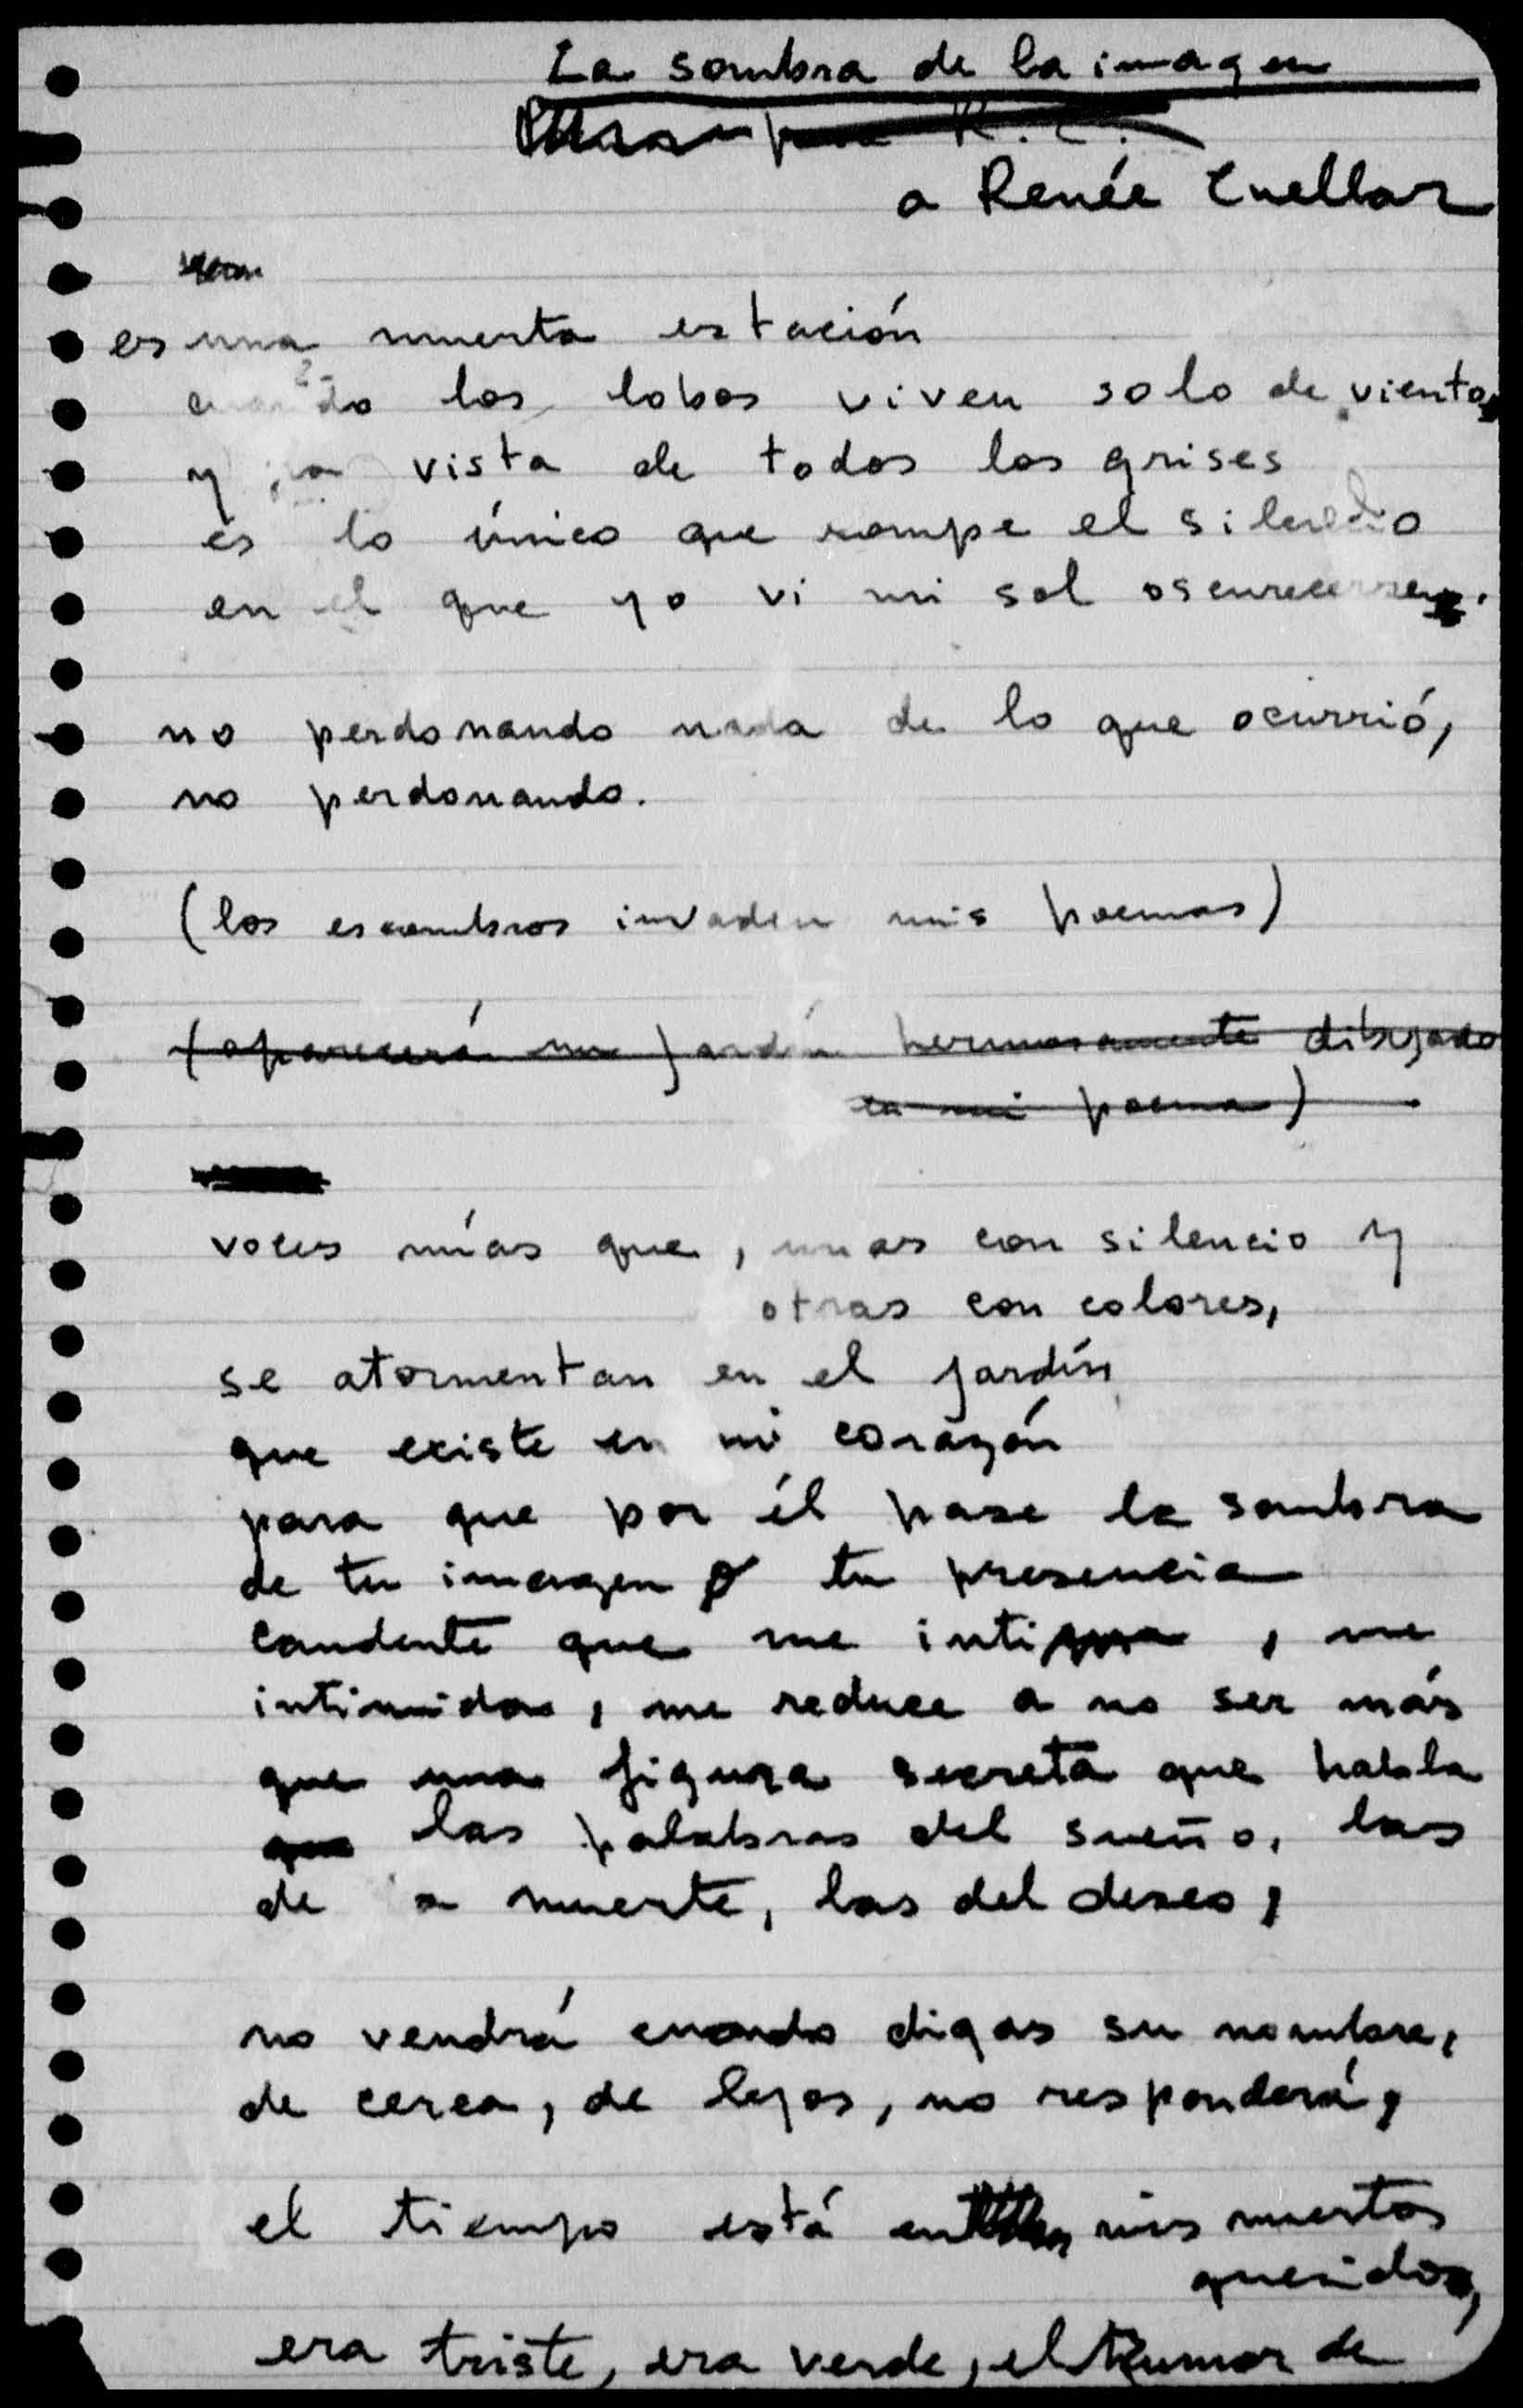 La sombra de la imagen
R. C.
a Renée Cuellar
es una muerta estación
cuando los lobos viven solo de viento
y la vista de todos los grises
es lo único que rompe el silencio
en el que yo vi mi sol oscurecerse.
no perdonando nada de lo que ocurrió,
no perdonando.
(los escombros invaden mis poemas)
(aparecerá un jardín hermosamente dibujado
en mi poema)
voces mías que, unas con silencio y
otras con colores,
se atormentan en el jardín
que existe en mi corazón
para que por él pase la sombra
de tu imagen o tu presencia
candente que me intima, me
intimida, me reduce a no ser más
que una figura secreta que habla
que las palabras del sueño, las
de la muerte, las del deseo,
no vendrá cuando digas su nombre,
de cerca, de lejos, no responderá,
el tiempo está en mis muertos
queridos,
era triste, era verde, el rumor de